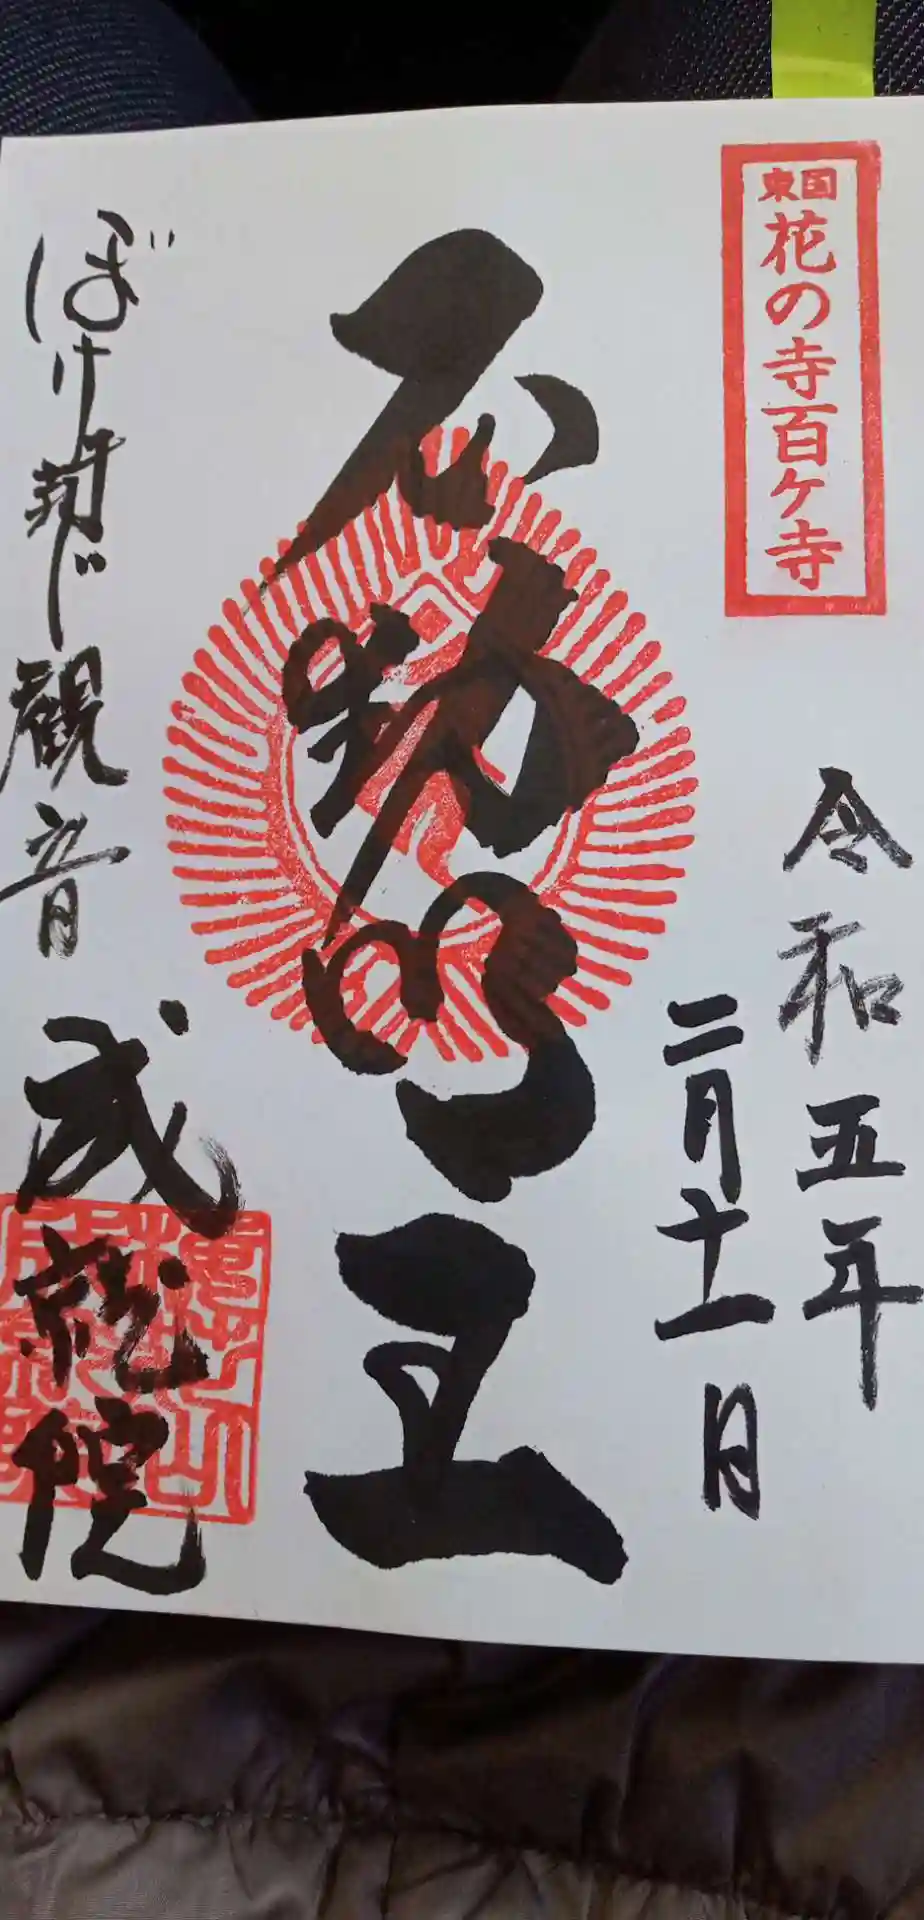 東国
花の寺百ケ寺
令和五年
二月十一日
不動明王
ぼけ封じ観音
成就院